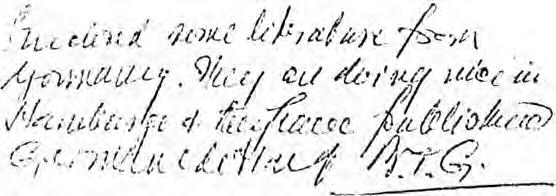 Enclosed some literature from
Germany. They are doing nice in
Hamburg & they have published
German edition of B.T.G.